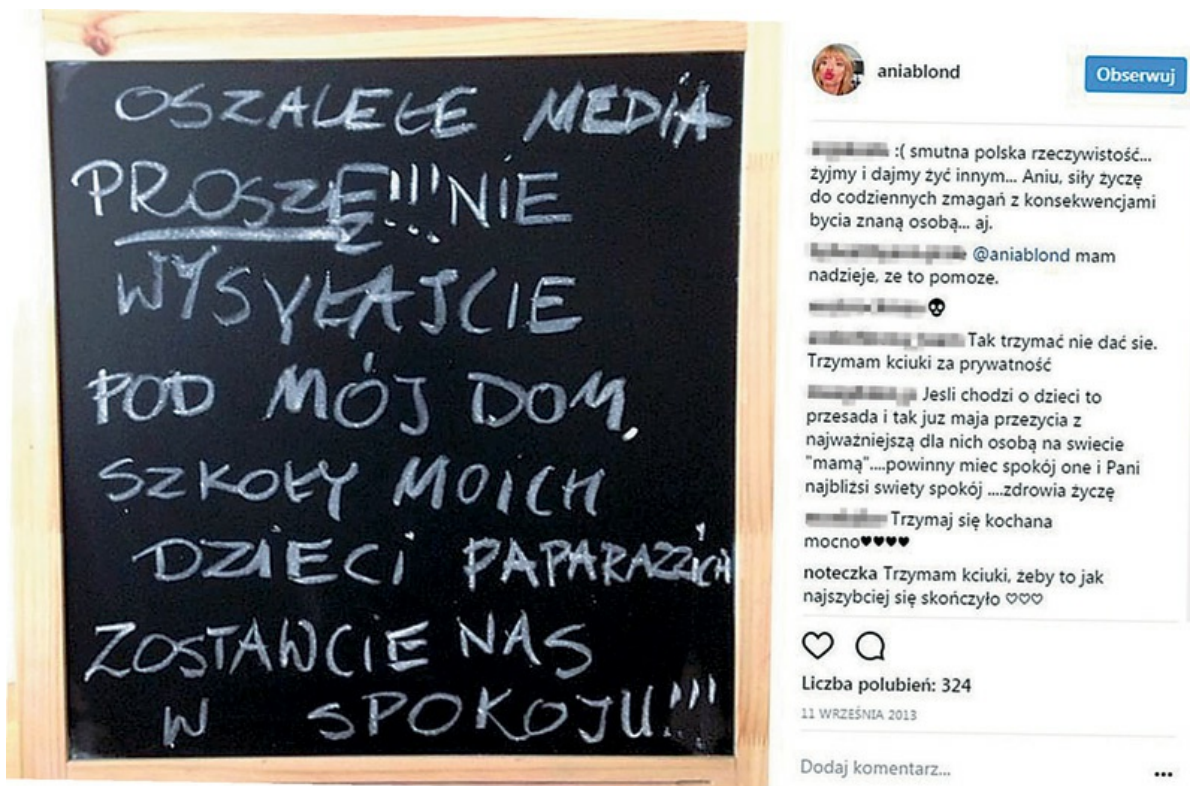 OSZALEŁE MEDIA
PROSZĘ!!! NIE
WYSYŁAJCIE
POD MÓJ DOM,
SZKOŁY MOICH
DZIECI PAPARAZZICH
ZOSTAWCIE NAS
W SPOKOJU!!!
aniablond
Obserwuj
:( smutna polska rzeczywistość...
żyjmy i dajmy żyć innym... Aniu, siły życzę
do codziennych zmagań z konsekwencjami
bycia znaną osobą... aj.
@aniablond mam
nadzieje, ze to pomoze.
Tak trzymać nie dać sie.
Trzymam kciuki za prywatność
Jesli chodzi o dzieci to
przesada i tak juz maja przezycia z
najważniejszą dla nich osobą na swiecie
"mamą"....powinny miec spokój one i Pani
najbliżsi swiety spokój ....zdrowia życzę
Trzymaj się kochana
mocno♥♥♥♥
noteczka Trzymam kciuki, żeby to jak
najszybciej się skończyło ♡♡♡
Liczba polubień: 324
11 WRZEŚNIA 2013
Dodaj komentarz...